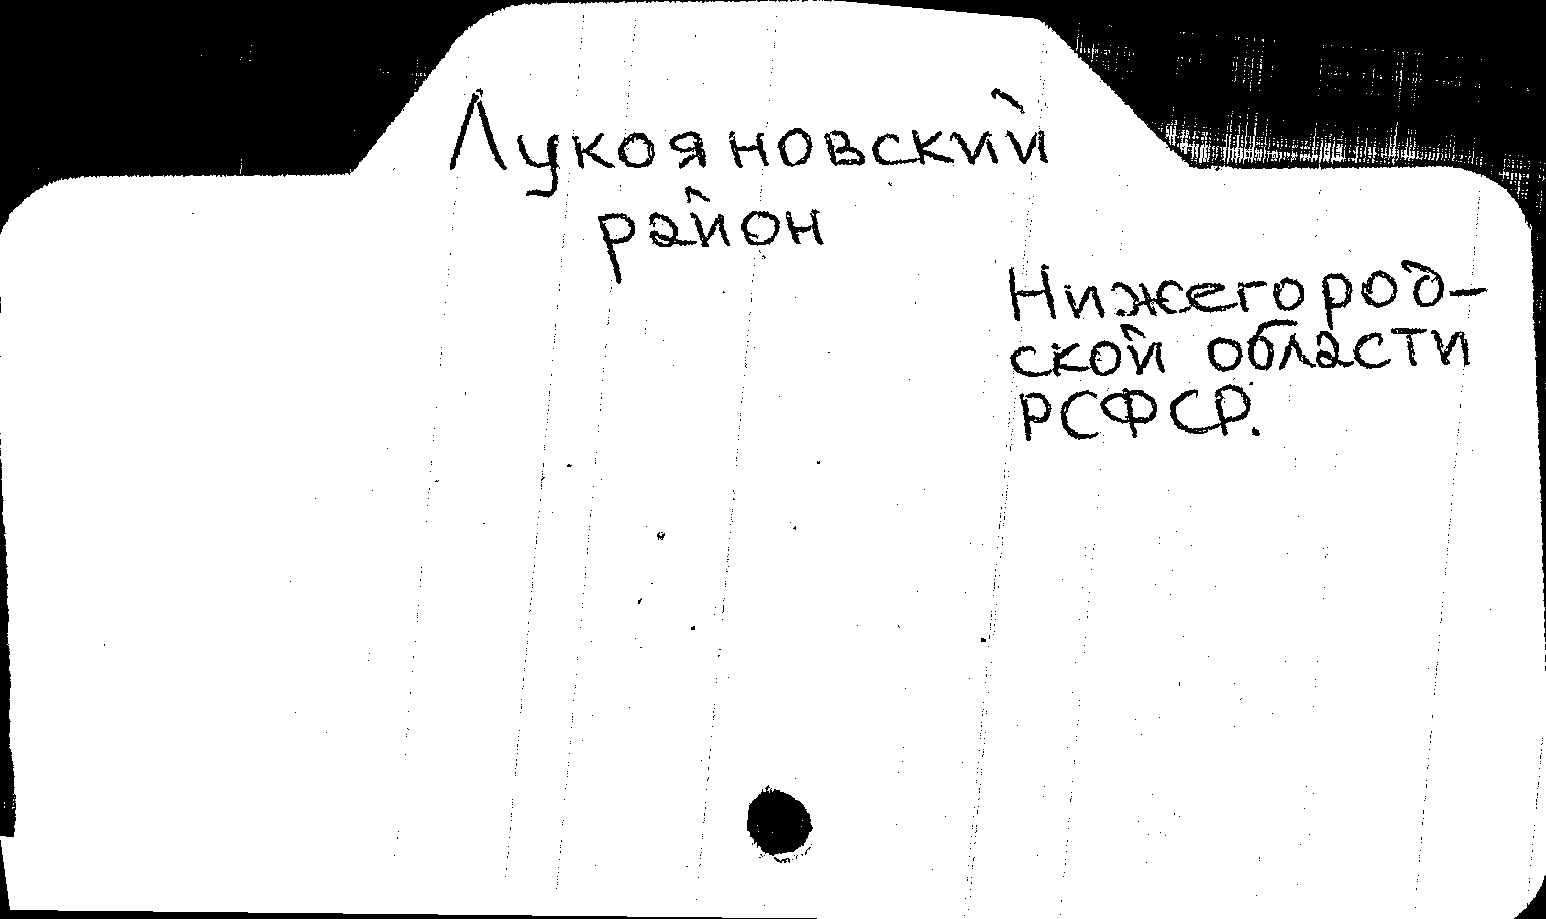 Лукояновский
район
Нижегород-
ской области
РСФСР.